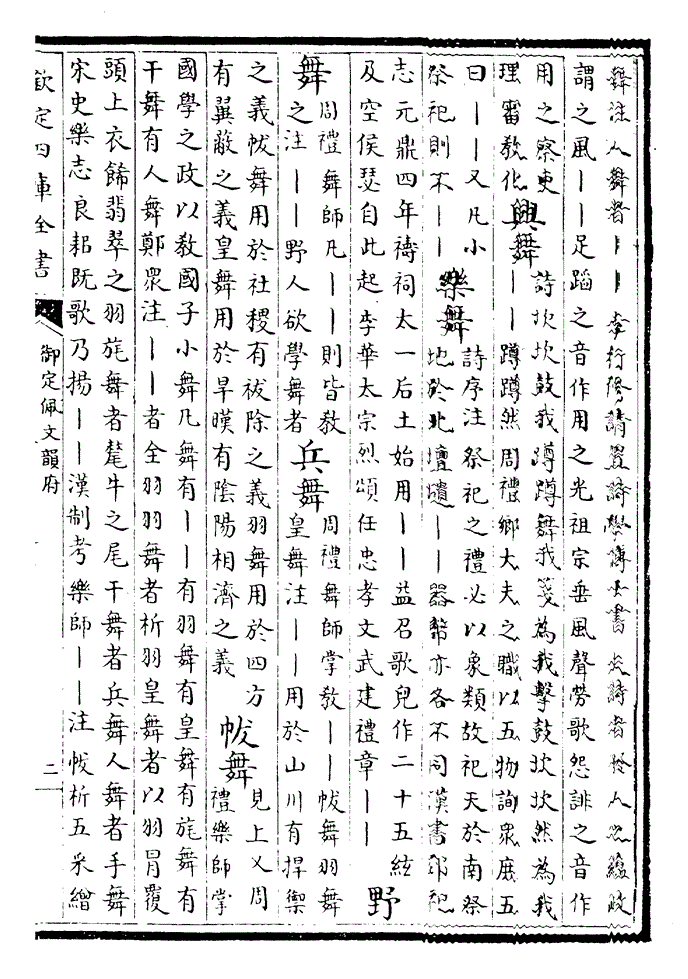 舞注人舞者｜｜李行修請置詩學博士書夫詩者發人之蘊政
謂之風｜｜足蹈之音作用之光祖宗垂風聲勞歌怨誹之音作
用之察吏
理審教化
興舞
詩坎坎鼓我蹲蹲舞我箋為我擊鼓坎坎然為我
｜｜蹲蹲然周禮鄉大夫之職以五物詢衆庶五
曰｜｜又凡小
祭祀則不｜｜
樂舞
詩序注祭祀之禮必以象類故祀天於南祭
地於北壇壝｜｜器幣亦各不同漢書郊祀
志元鼎四年禱祠太一后土始用｜｜益召歌兒作二十五絃
及空侯瑟自此起李華太宗烈頌任忠孝文武建禮章｜｜
野
舞
周禮舞師凡｜｜則皆教
之注｜｜野人欲學舞者
兵舞
周禮舞師掌教｜｜帗舞羽舞
皇舞注｜｜用於山川有捍禦
之義帗舞用於社稷有祓除之義羽舞用於四方
有翼蔽之義皇舞用於旱暵有陰陽相濟之義
帗舞
見上又周
禮樂師掌
國學之政以教國子小舞凡舞有｜｜有羽舞有皇舞有旄舞有
干舞有人舞鄭衆注｜｜者全羽羽舞者析羽皇舞者以羽冒覆
頭上衣飾翡翠之羽旄舞者氂牛之尾干舞者兵舞人舞者手舞
宋史樂志良耜既歌乃揚｜｜漢制考樂師｜｜注帗析五采繒
欽定四庫全書
御定佩文韻府
二